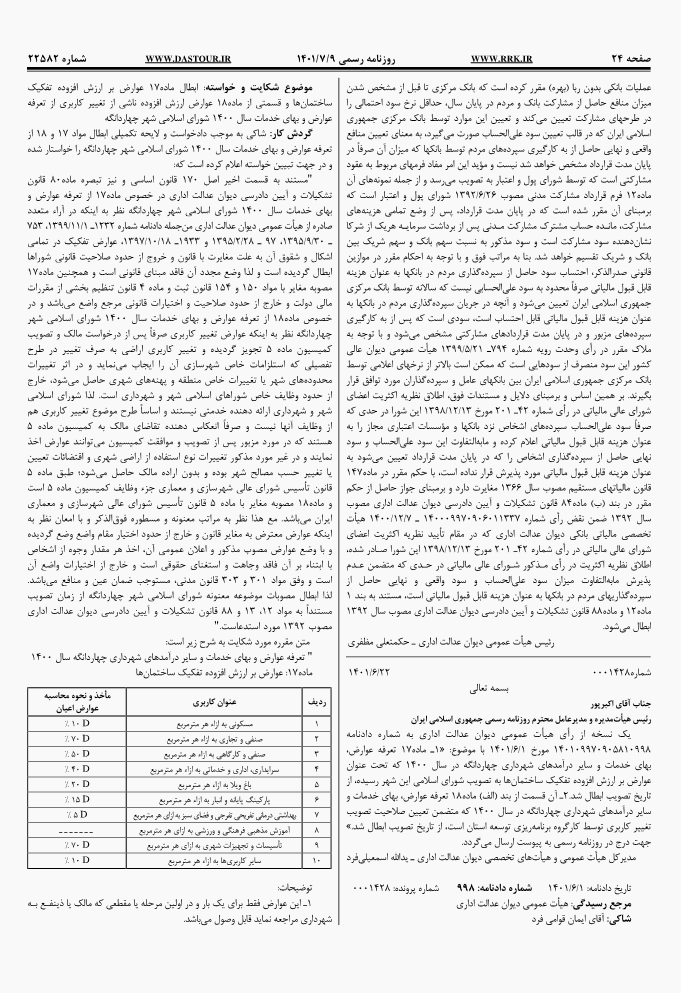 صفحه ۲۴
WWW.RRK.IR
روزنامه رسمی ۱۴۰۱/۷/۹
WWW.DASTOUR.IR
شماره ۲۲۵۸۲
عملیات بانکی بدون ربا (بهره) مقرر کرده است که بانک مرکزی تا قبل از مشخص شدن
میزان منافع حاصل از مشارکت بانک و مردم در پایان سال، حداقل نرخ سود احتمالی را
در طرحهای مشارکت تعیین می‌کند و تعیین این موارد توسط بانک مرکزی جمهوری
اسلامی ایران که در قالب تعیین سود علی‌الحساب صورت می‌گیرد، به معنای تعیین منافع
واقعی و نهایی حاصل از به کارگیری سپرده‌های مردم توسط بانکها که میزان آن صرفاً در
پایان مدت قرارداد مشخص خواهد شد نیست و مؤید این امر مفاد فرمهای مربوط به عقود
مشارکتی است که توسط شورای پول و اعتبار به تصویب می‌رسد و از جمله نمونه‌های آن
ماده۱۲ فرم قرارداد مشارکت مدنی مصوب ۱۳۹۲/۶/۲۶ شورای پول و اعتبار است که
برمبنای آن مقرر شده است که در پایان مدت قرارداد، پس از وضع تمامی هزینه‌های
مشارکت، مانـده حساب مشترک مشارکت مـدنی پس از برداشت سرمایـه هریک از شرکا
نشان‌دهنده سود مشارکت است و سود مذکور به نسبت سهم بانک و سهم شریک بین
بانک و شریک تقسیم خواهد شد. بنا به مراتب فوق و با توجه به احکام مقرر در موازین
قانونی صدرالذکر، احتساب سود حاصل از سپرده‌گذاری مردم در بانکها به عنوان هزینه
قابل قبول مالیاتی صرفاً محدود به سود علی‌الحسابی نیست که سالانه توسط بانک مرکزی
جمهوری اسلامی ایران تعیین می‌شود و آنچه در جریان سپرده‌گذاری مردم در بانکها به
عنوان هزینه قابل قبول مالیاتی قابل احتساب است، سودی است که پس از به کارگیری
سپرده‌های مزبور و در پایان مدت قراردادهای مشارکتی مشخص می‌شود و با توجه به
ملاک مقرر در رأی وحدت رویه شماره ۷۹۴ـ ۱۳۹۹/۵/۲۱ هیأت عمومی دیوان عالی
کشور این سود منصرف از سودهایی است که ممکن است بالاتر از نرخهای اعلامی توسط
بانک مرکزی جمهوری اسلامی ایران بین بانکهای عامل و سپرده‌گذاران مورد توافق قرار
بگیرند. بر همین اساس و برمبنای دلایل و مستندات فوق، اطلاق نظریه اکثریت اعضای
شورای عالی مالیاتی در رأی شماره ۴۲ـ ۲۰۱ مورخ ۱۳۹۸/۱۲/۱۳ این شورا در حدی که
صرفاً سود علی‌الحساب سپرده‌های اشخاص نزد بانکها و مؤسسات اعتباری مجاز را به
عنوان هزینه قابل قبول مالیاتی اعلام کرده و مابه‌التفاوت این سود علی‌الحساب و سود
نهایی حاصل از سپرده‌گذاری اشخاص را که در پایان مدت قرارداد تعیین می‌شود به
عنوان هزینه قابل قبول مالیاتی مورد پذیرش قرار نداده است، با حکم مقرر در ماده۱۴۷
قانون مالیاتهای مستقیم مصوب سال ۱۳۶۶ مغایرت دارد و برمبنای جواز حاصل از حکم
مقرر در بند (ب) ماده۸۴ قانون تشکیلات و آیین دادرسی دیوان عدالت اداری مصوب
سال ۱۳۹۲ ضمن نقض رأی شماره ۱۴۰۰۰۹۹۷۰۹۰۶۰۱۱۳۳۷ ـ ۱۴۰۰/۱۲/۷ هیأت
تخصصی مالیاتی بانکی دیوان عدالت اداری که در مقام تأیید نظریه اکثریت اعضای
شورای عالی مالیاتی در رأی شماره ۴۲ـ ۲۰۱ مورخ ۱۳۹۸/۱۲/۱۳ این شورا صـادر شده،
اطلاق نظریه اکثریت در رأی مـذکور شـورای عالی مالیاتی در حـدی که متضمن عـدم
پذیرش مابه‌التفاوت میزان سود علی‌الحساب و سود واقعی و نهایی حاصل از
سپرده‌گذاریهای مردم در بانکها به عنوان هزینه قابل قبول مالیاتی است، مستند به بند ۱
ماده۱۲ و ماده۸۸ قانون تشکیلات و آیین دادرسی دیوان عدالت اداری مصوب سال ۱۳۹۲
ابطال می‌شود.
رئیس هیأت عمومی دیوان عدالت اداری ـ حکمتعلی مظفری
شماره۰۰۰۱۴۲۸
۱۴۰۱/۶/۲۲
بسمه تعالی
جناب آقای اکبرپور
رئیس هیأت‌مدیره و مدیرعامل محترم روزنامه رسمی جمهوری اسلامی ایران
یک نسخه از رأی هیأت عمومی دیوان عدالت اداری به شماره دادنامه
۱۴۰۱۰۹۹۷۰۹۰۵۸۱۰۹۹۸ مورخ ۱۴۰۱/۶/۱ با موضوع: «۱ـ ماده۱۷ تعرفه عوارض،
بهای خدمات و سایر درآمدهای شهرداری چهاردانگه در سال ۱۴۰۰ که تحت عنوان
عوارض بر ارزش افزوده تفکیک ساختمان‌ها به تصویب شورای اسلامی این شهر رسیده، از
تاریخ تصویب ابطال شد.۲ـ آن قسمت از بند (الف) ماده۱۸ تعرفه عوارض، بهای خدمات و
سایر درآمدهای شهرداری چهاردانگه در سال ۱۴۰۰ که متضمن تعیین صلاحیت تصویب
تغییر کاربری توسط کارگروه برنامه‌ریزی توسعه استان است، از تاریخ تصویب ابطال شد.»
جهت درج در روزنامه رسمی به پیوست ارسال می‌گردد.
مدیرکل هیأت عمومی و هیأت‌های تخصصی دیوان عدالت اداری ـ یدالله اسمعیلی‌فرد
تاریخ دادنامه: ۱۴۰۱/۶/۱ شماره دادنامه: ۹۹۸ شماره پرونده: ۰۰۰۱۴۲۸
مرجع رسیدگی: هیأت عمومی دیوان عدالت اداری
شاکی: آقای ایمان قوامی فرد
موضوع شکایت و خواسته: ابطال ماده۱۷ عوارض بر ارزش افزوده تفکیک
ساختمان‌ها و قسمتی از ماده۱۸ عوارض ارزش افزوده ناشی از تغییر کاربری از تعرفه
عوارض و بهای خدمات سال ۱۴۰۰ شورای اسلامی شهر چهاردانگه
گردش کار: شاکی به موجب دادخواست و لایحه تکمیلی ابطال مواد ۱۷ و ۱۸ از
تعرفه عوارض و بهای خدمات سال ۱۴۰۰ شورای اسلامی شهر چهاردانگه را خواستار شده
و در جهت تبیین خواسته اعلام کرده است که:
"مستند به قسمت اخیر اصل ۱۷۰ قانون اساسی و نیز تبصره ماده۸۰ قانون
تشکیلات و آیین دادرسی دیوان عدالت اداری در خصوص ماده۱۷ از تعرفه عوارض و
بهای خدمات سال ۱۴۰۰ شورای اسلامی شهر چهاردانگه نظر به اینکه در آراء متعدد
صادره از هیأت عمومی دیوان عدالت اداری من‌جمله دادنامه شماره ۱۲۳۲ـ ۱۳۹۹/۱۱/۱، ۷۵۳
ـ ۱۳۹۵/۹/۳۰، ۹۷ ـ ۱۳۹۵/۲/۲۸ و ۱۹۳۳ـ ۱۳۹۷/۱۰/۱۸، عوارض تفکیک در تمامی
اشکال و شقوق آن به علت مغایرت با قانون و خروج از حدود صلاحیت قانونی شوراها
ابطال گردیده است و لذا وضع مجدد آن فاقد مبنای قانونی است و همچنین ماده۱۷
مصوبه مغایر با مواد ۱۵۰ و ۱۵۴ قانون ثبت و ماده ۴ قانون تنظیم بخشی از مقررات
مالی دولت و خارج از حدود صلاحیت و اختیارات قانونی مرجع واضع می‌باشد و در
خصوص ماده۱۸ از تعرفه عوارض و بهای خدمات سال ۱۴۰۰ شورای اسلامی شهر
چهاردانگه نظر به اینکه عوارض تغییر کاربری صرفاً پس از درخواست مالک و تصویب
کمیسیون ماده ۵ تجویز گردیده و تغییر کاربری اراضی به صرف تغییر در طرح
تفصیلی که استلزامات خاص شهرسازی آن را ایجاب می‌نماید و در اثر تغییرات
محدوده‌های شهر یا تغییرات خاص منطقه و پهنه‌های شهری حاصل می‌شود، خارج
از حدود وظایف خاص شوراهای اسلامی شهر و شهرداری است. لذا شورای اسلامی
شهر و شهرداری ارائه دهنده خدمتی نیستند و اساساً طرح موضوع تغییر کاربری هم
از وظایف آنها نیست و صرفاً انعکاس دهنده تقاضای مالک به کمیسیون ماده ۵
هستند که در مورد مزبور پس از تصویب و موافقت کمیسیون می‌توانند عوارض اخذ
نمایند و در غیر مورد مذکور تغییرات نوع استفاده از اراضی شهری و اقتضائات تعیین
یا تغییر حسب مصالح شهر بوده و بدون اراده مالک حاصل می‌شود؛ طبق ماده ۵
قانون تأسیس شورای عالی شهرسازی و معماری جزء وظایف کمیسیون ماده ۵ است
و ماده۱۸ مصوبه مغایر با ماده ۵ قانون تأسیس شورای عالی شهرسازی و معماری
ایران می‌باشد. مع هذا نظر به مراتب معنونه و مسطوره فوق‌الذکر و با امعان نظر به
اینکه عوارض معترض به مغایر قانون و خارج از حدود اختیار مقام واضع وضع گردیده
و با وضع عوارض مصوب مذکور و اعلان عمومی آن، اخذ هر مقدار وجوه از اشخاص
با ابتناء بر آن فاقد وجاهت و استغنای حقوقی است و خارج از اختیارات واضع آن
است و وفق مواد ۳۰۱ و ۳۰۳ قانون مدنی، مستوجب ضمان عین و منافع می‌باشد.
لذا ابطال مصوبات موضوعه معنونه شورای اسلامی شهر چهاردانگه از زمان تصویب
مستنداً به مواد ۱۲، ۱۳ و ۸۸ قانون تشکیلات و آیین دادرسی دیوان عدالت اداری
مصوب ۱۳۹۲ مورد استدعاست."
متن مقرره مورد شکایت به شرح زیر است:
" تعرفه عوارض و بهای خدمات و سایر درآمدهای شهرداری چهاردانگه سال ۱۴۰۰
ماده۱۷: عوارض بر ارزش افزوده تفکیک ساختمان‌ها
ردیف عنوان کاربری مأخذ و نحوه محاسبه عوارض اعیان
۱ مسکونی به ازاء هر مترمربع ٪ ۱۰ D
۲ صنفی و تجاری به ازاء هر مترمربع ٪ ۷۰ D
۳ صنعتی و کارگاهی به ازاء هر مترمربع ٪ ۵۰ D
۴ سرایداری، اداری و خدماتی به ازاء هر مترمربع ٪ ۴۰ D
۵ باغ ویلا به ازاء هر مترمربع ٪ ۲۰ D
۶ پارکینگ، پایانه و انبار به ازاء هر مترمربع ٪ ۱۵ D
۷ بهداشتی درمانی تفریحی تفرجی و فضای سبز به ازای هر مترمربع ٪ ۵ D
۸ آموزش مذهبی فرهنگی و ورزشی به ازای هر مترمربع -------
۹ تأسیسات و تجهیزات شهری به ازای هر مترمربع ٪ ۷۰ D
۱۰ سایر کاربری‌ها به ازاء هر مترمربع ٪ ۱۰ D
توضیحات:
۱ـ این عوارض فقط برای یک بار و در اولین مرحله یا مقطعی که مالک یا ذینفـع بـه
شهرداری مراجعه نماید قابل وصول می‌باشد.